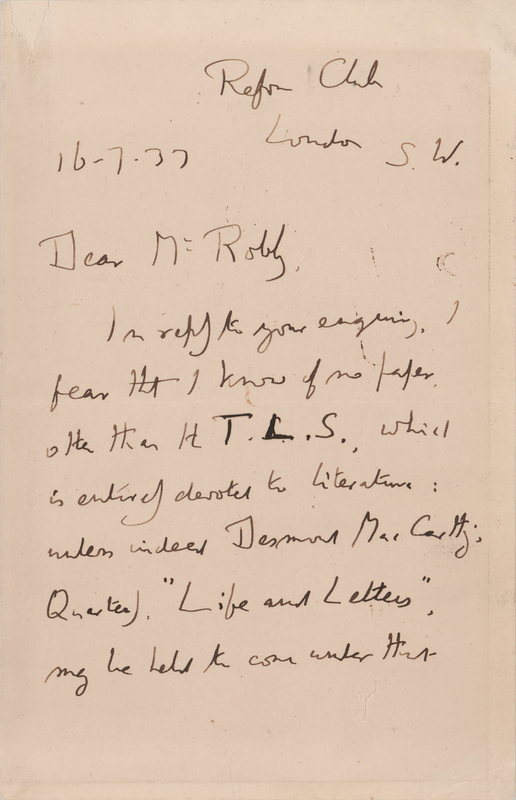 Reform Club
London S. W.
16-7-37
Dear Mr Robb,
In reply to your enquiry, I
fear that I know of no paper,
other than the T.L.S., which
is entirely devoted to literature:
unless indeed Desmond MacCarthy's
Quarterly, "Life and Letters",
may be held to come under that